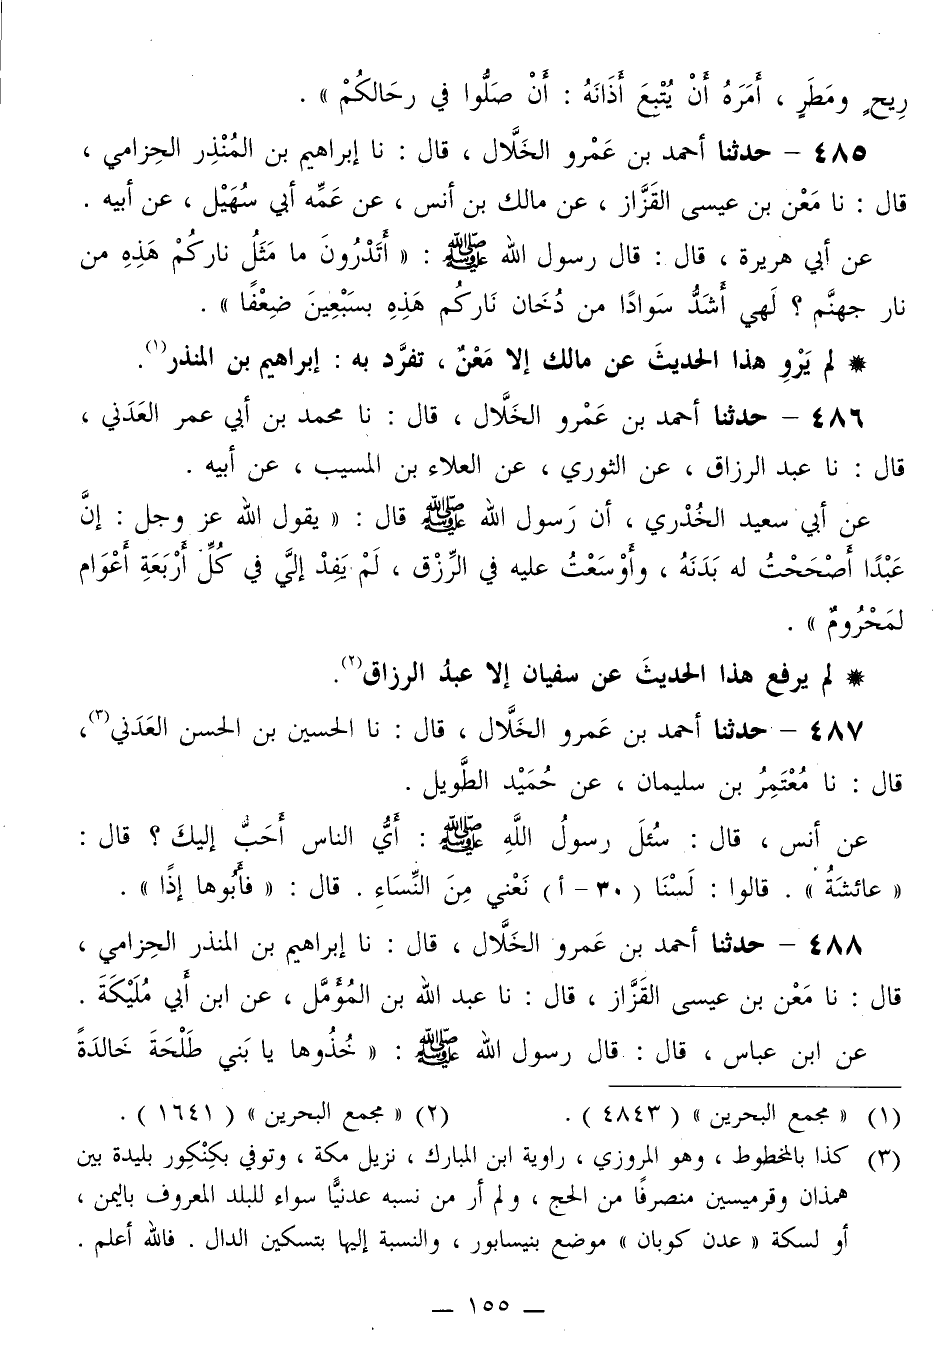 رِيحٍ ومَطَرٍ ، أَمَرَهُ أَنْ يُتْبِعَ أَذَانَهُ : أَنْ صَلُّوا في رحَالكُمْ » .
٤٨٥ – حدثنا أحمد بن عَمْرو الخَلَّال ، قال : نا إبراهيم بن المُنْذِر الحِزامي ،
قال : نا مَعْن بن عيسى القَزَّاز ، عن مالك بن أنس ، عن عَمِّه أبي سُهَيْل ، عن أبيه .
عن أبي هريرة ، قال : قال رسول الله ﷺ : « أَتَدْرُونَ ما مَثَلُ ناركُمْ هَذِهِ من
نار جهنَّم ؟ لَهي أَشَدُّ سَوادًا من دُخَان نَاركُم هَذِهِ بسَبْعِينَ ضِعْفًا » .
* لم يَرْوِ هذا الحديثَ عن مالك إلا مَعْنٌ ، تفرَّد به : إبراهيم بن المنذر(١).
٤٨٦ – حدثنا أحمد بن عَمْرو الخَلَّال ، قال : نا محمد بن أبي عمر العَدَني ،
قال : نا عبد الرزاق ، عن الثوري ، عن العلاء بن المسيب ، عن أبيه .
عن أبي سعيد الخُدْري ، أن رَسول الله ﷺ قال : « يقول الله عز وجل : إنَّ
عَبْدًا أَصْحَحْتُ له بَدَنَهُ ، وأَوْسَعْتُ عليه في الرِّزْق ، لَمْ يَفِدْ إليَّ في كُلِّ أَرْبَعَةِ أَعْوَام
لمَحْرُومٌ » .
* لم يرفع هذا الحديثَ عن سفيان إلا عبدُ الرزاق(٢).
٤٨٧ – حدثنا أحمد بن عَمرو الخَلَّال ، قال : نا الحسين بن الحسن العَدَني(٣)،
قال : نا مُعْتَمِرُ بن سليمان ، عن حُمَيْد الطَّويل .
عن أنس ، قال : سُئلَ رسولُ اللَّهِ ﷺ : أَيُّ الناس أَحَبُّ إليكَ ؟ قال :
« عائشَةُ » . قالوا : لَسْنَا ( ٣٠ – أ ) نَعْني مِنَ النِّسَاءِ . قال : « فأَبُوها إذًا » .
٤٨٨ – حدثنا أحمد بن عَمرو الخَلَّال ، قال : نا إبراهيم بن المنذر الحِزامي ،
قال : نا مَعْن بن عيسى القَزَّاز ، قال : نا عبد الله بن المُؤَمَّل ، عن ابن أَبي مُلَيْكَةَ .
عن ابن عباس ، قال : قال رسول الله ﷺ : « خُذُوها يا بَني طَلْحَةَ خَالدَةً
(١) « مجمع البحرين » ( ٤٨٤٣ ) . (٢) « مجمع البحرين » ( ١٦٤١ ) .
(٣) كذا بالمخطوط ، وهو المروزي ، راوية ابن المبارك ، نزيل مكة ، وتوفي بكِنْكِور بليدة بين
همذان وقرميسين منصرفًا من الحج ، ولم أر من نسبه عدنيًّا سواء للبلد المعروف باليمن ،
أو لسكة « عدن كوبان » موضع بنيسابور ، والنسبة إليها بتسكين الدال . فالله أعلم .
– ١٥٥ –